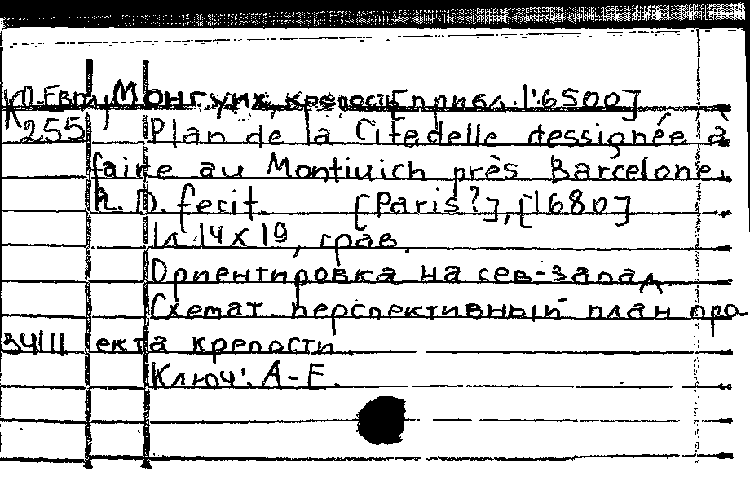 КП.Евт, Монгуих, крепость [прибл. 1:6500]
К 255 Plan de la Citadelle dessignée à
faire au Montiuich près Barcelone.
R. D. fecit. [Paris?], [1680]
1л. 14 x 19, грав.
Ориентировка на сев-запад
Схемат перспективный план про
34111 екта крепости.
Ключ: A-F.